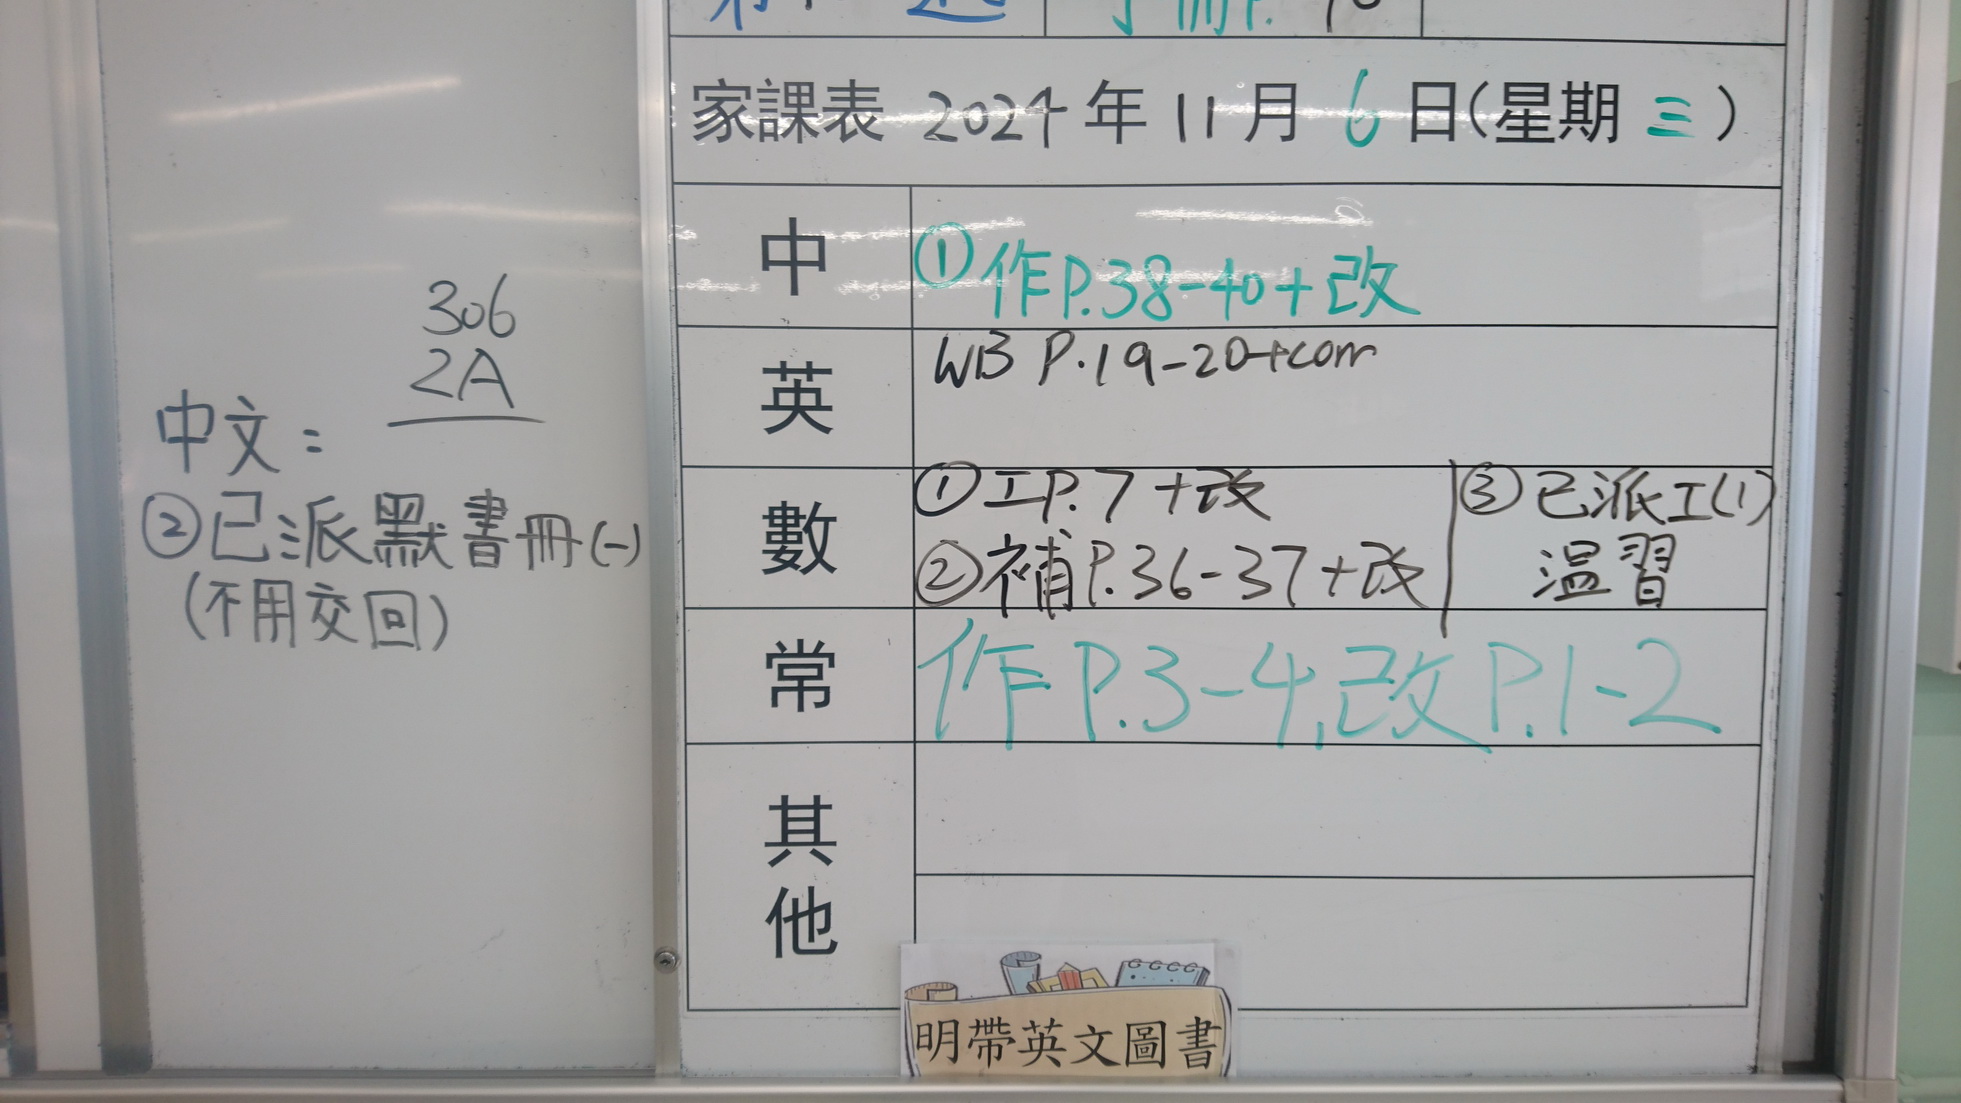 手冊P.
家課表 2024年11月6日(星期三)
中
①作P.38-40+改
英
WB P.19-20+corr
數
①工P.7+改
②補P.36-37+改
③已派工(1)
溫習
常
作P.3-4,改P.1-2
其他
明帶英文圖書
306
2A
中文:
②已派默書冊(一)
(不用交回)